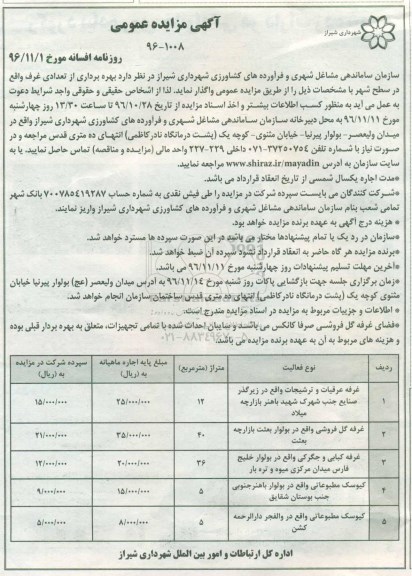 آگهی مزایده عمومی
۹۶-۱۰۰۸
شهرداری شیراز
روزنامه افسانه مورخ ۹۶/۱۱/۱
سازمان ساماندهی مشاغل شهری و فرآورده های کشاورزی شهرداری شیراز در نظر دارد بهره برداری از تعدادی غرف واقع
در سطح شهر با مشخصات ذیل را از طریق مزایده عمومی واگذار نماید. لذا از اشخاص حقیقی و حقوقی واجد شرایط دعوت
به عمل می آید به منظور کسب اطلاعات بیشتر و اخذ اسناد مزایده از تاریخ ۹۶/۱۰/۲۸ تا ساعت ۱۳/۳۰ روز چهارشنبه
مورخ ۹۶/۱۱/۱۱ به محل دبیرخانه سازمان ساماندهی مشاغل شهری و فرآورده های کشاورزی شهرداری شیراز واقع در
میدان ولیعصر- بولوار پیرنیا- خیابان مثنوی- کوچه یک (پشت درمانگاه نادرکاظمی) انتهای ده متری قدس مراجعه و در
صورت نیاز با شماره تلفن ۳۷۲۵۰۷۵۴-۰۷۱ داخلی ۲۲۹-۲۳۷ واحد مالی (مزایده و مناقصه) تماس حاصل نمایید. یا به
سایت سازمان به آدرس www.shiraz.ir/mayadin مراجعه نمایید.
*مدت اجاره یکسال شمسی از تاریخ انعقاد قرارداد می باشد.
*شرکت کنندگان می بایست سپرده شرکت در مزایده را طی فیش نقدی به شماره حساب ۷۰۰۷۸۵۴۱۹۲۸۷ بانک شهر
تمامی شعب بنام سازمان ساماندهی مشاغل شهری و فرآورده های کشاورزی شهرداری شیراز واریز نمایند.
* هزینه درج آگهی به عهده برنده مزایده خواهد بود.
*سازمان در رد یک یا تمام پیشنهادها مختار می باشد در این صورت سپرده ها مسترد خواهد شد.
*برنده مزایده هر گاه حاضر به انعقاد قرارداد نشود سپرده آن ضبط خواهد شد.
*آخرین مهلت تسلیم پیشنهادات روز چهارشنبه مورخ ۹۶/۱۱/۱۱ می باشد.
*زمان برگزاری جلسه جهت بازگشایی پاکات روز شنبه مورخ ۹۶/۱۱/۱۴ به آدرس میدان ولیعصر (عج) بولوار پیرنیا خیابان
مثنوی کوچه یک (پشت درمانگاه نادرکاظمی) انتهای ده متری قدس ساختمان سازمان انجام خواهد شد.
* اطلاعات و جزییات مربوط به مزایده در اسناد مزایده مندرج است.
*فضای غرفه گل فروشی صرفا کانکس می باشد و سایبان احداث شده با تمامی تجهیزات، متعلق به بهره بردار قبلی بوده
و هزینه های مربوط به آن به عهده برنده مزایده می باشد.
ردیف نوع فعالیت متراژ (مترمربع) مبلغ پایه اجاره ماهیانه به (ریال) سپرده شرکت در مزایده به (ریال)
۱ غرفه عرقیات و ترشیجات واقع در زیرگذر صنایع جنب شهرک شهید باهنر بازارچه میلاد ۱۲ ۲۵/۰۰۰/۰۰۰ ۱۵/۰۰۰/۰۰۰
۲ غرفه گل فروشی واقع در بولوار بعثت بازارچه بعثت ۴۰ ۳۵/۰۰۰/۰۰۰ ۲۱/۰۰۰/۰۰۰
۳ غرفه کبابی و جگرکی واقع در بولوار خلیج فارس میدان مرکزی میوه و تره بار ۳۶ ۲۰/۰۰۰/۰۰۰ ۱۲/۰۰۰/۰۰۰
۴ کیوسک مطبوعاتی واقع در بولوار باهنرجنوبی جنب بوستان شقایق ۵ ۱۵/۰۰۰/۰۰۰ ۹/۰۰۰/۰۰۰
۵ کیوسک مطبوعاتی واقع در والفجر دارالرحمه گشن ۵ ۸/۰۰۰/۰۰۰ ۵/۰۰۰/۰۰۰
اداره کل ارتباطات و امور بین الملل شهرداری شیراز